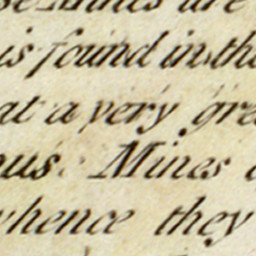 Mines are
is found in the
at a very gre
ous. Mines
whence they